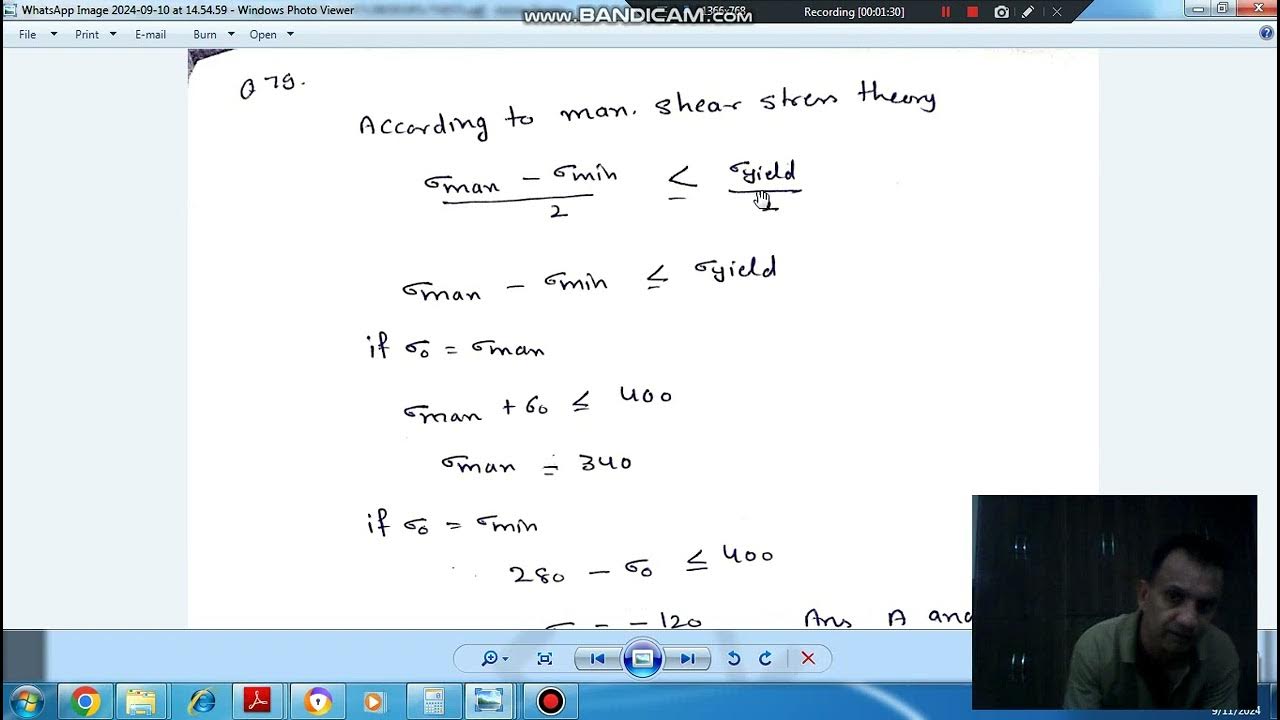 WhatsApp Image 2024-09-10 at 14.54.59 - Windows Photo Viewer
www.BANDICAM.com
Recording [00:01:30]
File Print E-mail Burn Open
Q 79.
According to man. shear stress theory
σman - σmin / 2 ≤ σyield / 2
σman - σmin ≤ σyield
if σ0 = σman
σman + 60 ≤ 400
σman = 340
if σ0 = σmin
280 - σ0 ≤ 400
= -120 Ans A and
9/11/2024